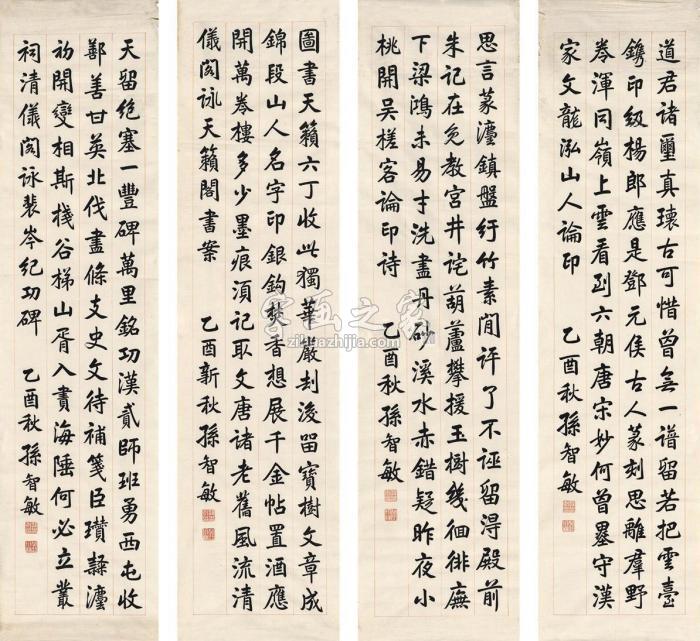 道君諸璽真瓌古可惜曾無一譜留若把雲臺
鐫印级楊郎應是鄧元侯古人篆刻思離羣舒
卷渾同嶺上雲看到六朝唐宋妙何曾墨守漢
家文龍泓山人論印 乙酉秋孫智敏
思言篆灋鎮盤紆竹素閒評了不誣留得殿前
朱記在免教宮井詫葫蘆攀援玉樹幾徊徘廡
下梁鴻未易才洗盡丹砂溪水赤錯疑昨夜小
桃開吳槎客論印詩 乙酉秋孫智敏
圖書天籟六丁收此獨華嚴刦後留寶樹文章成
錦段山人名字印銀鉤焚香想展千金帖置酒應
開萬卷樓多少墨痕湏記取文唐諸老舊風流清
儀閣詠天籟閣書案 乙酉新秋孫智敏
天留絕塞一豐碑萬里銘功漢貳師班勇西屯收
鄯善甘英北伐盡條支史文待補箋臣瓚隸灋
初開變相斯棧谷梯山胥入畫海陲何必立叢
祠清儀閣詠裴岑紀功碑 乙酉秋孫智敏
字画之家
zihuazhijia.com